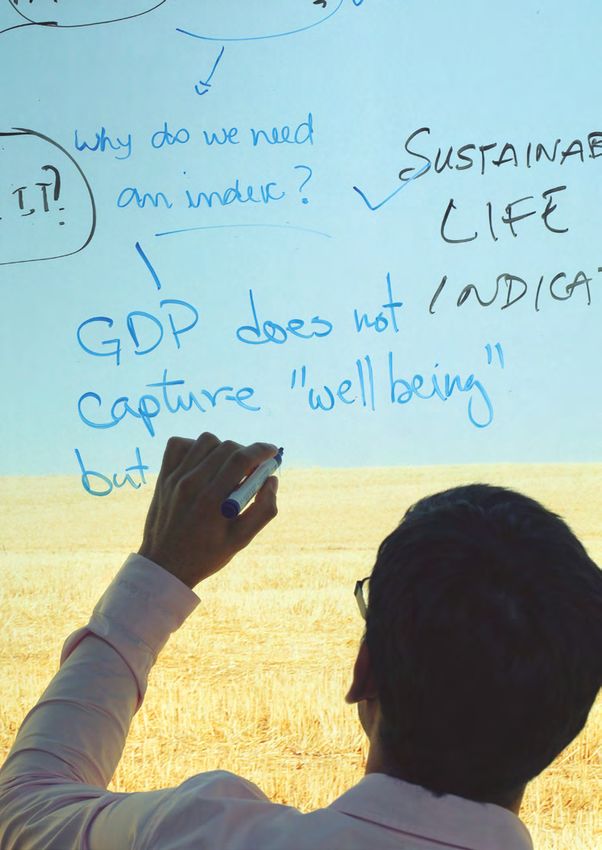 why do we need
an index?
IT?
SUSTAINAB
LIFE
INDICAT
GDP does not
capture "well being"
but